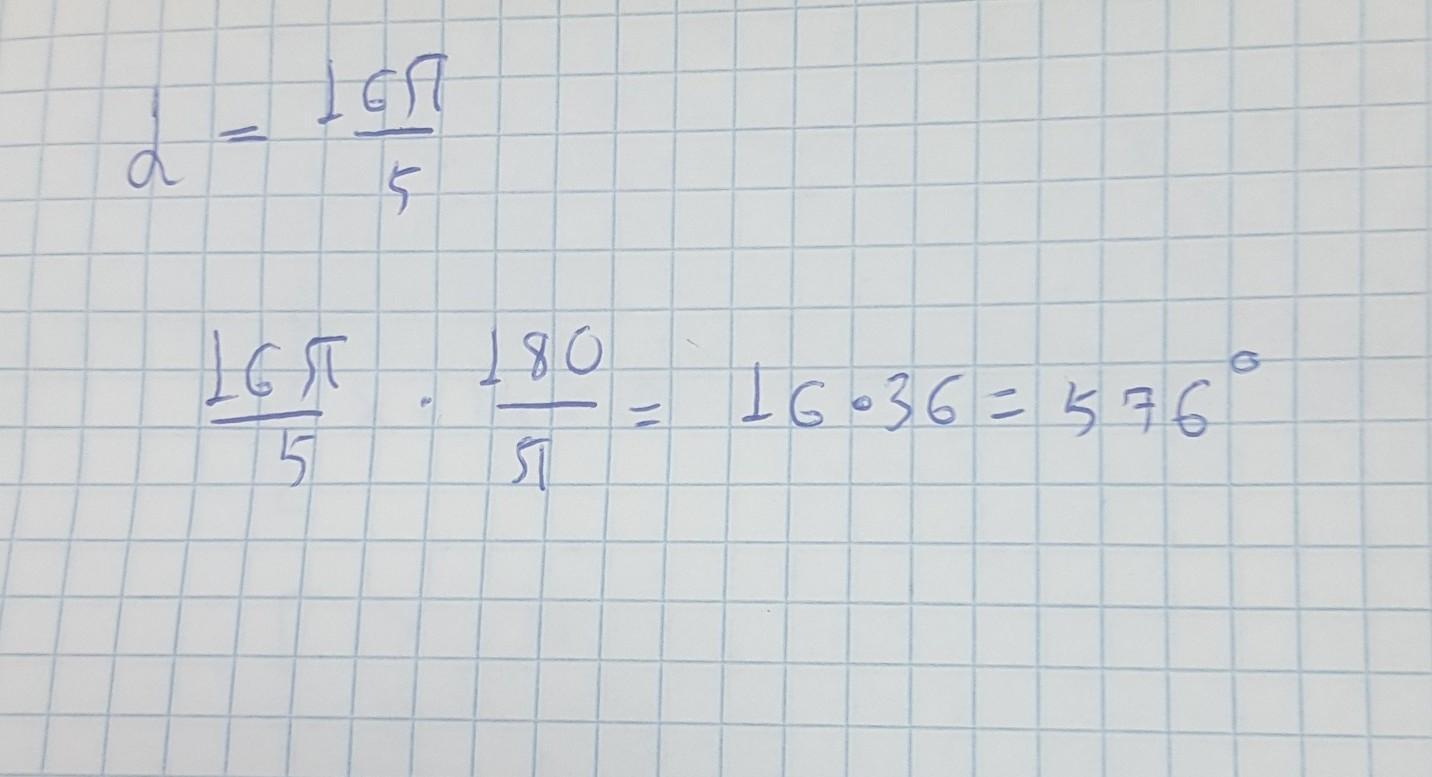 α = 16π/5
16π/5 · 180/π = 16•36 = 576°